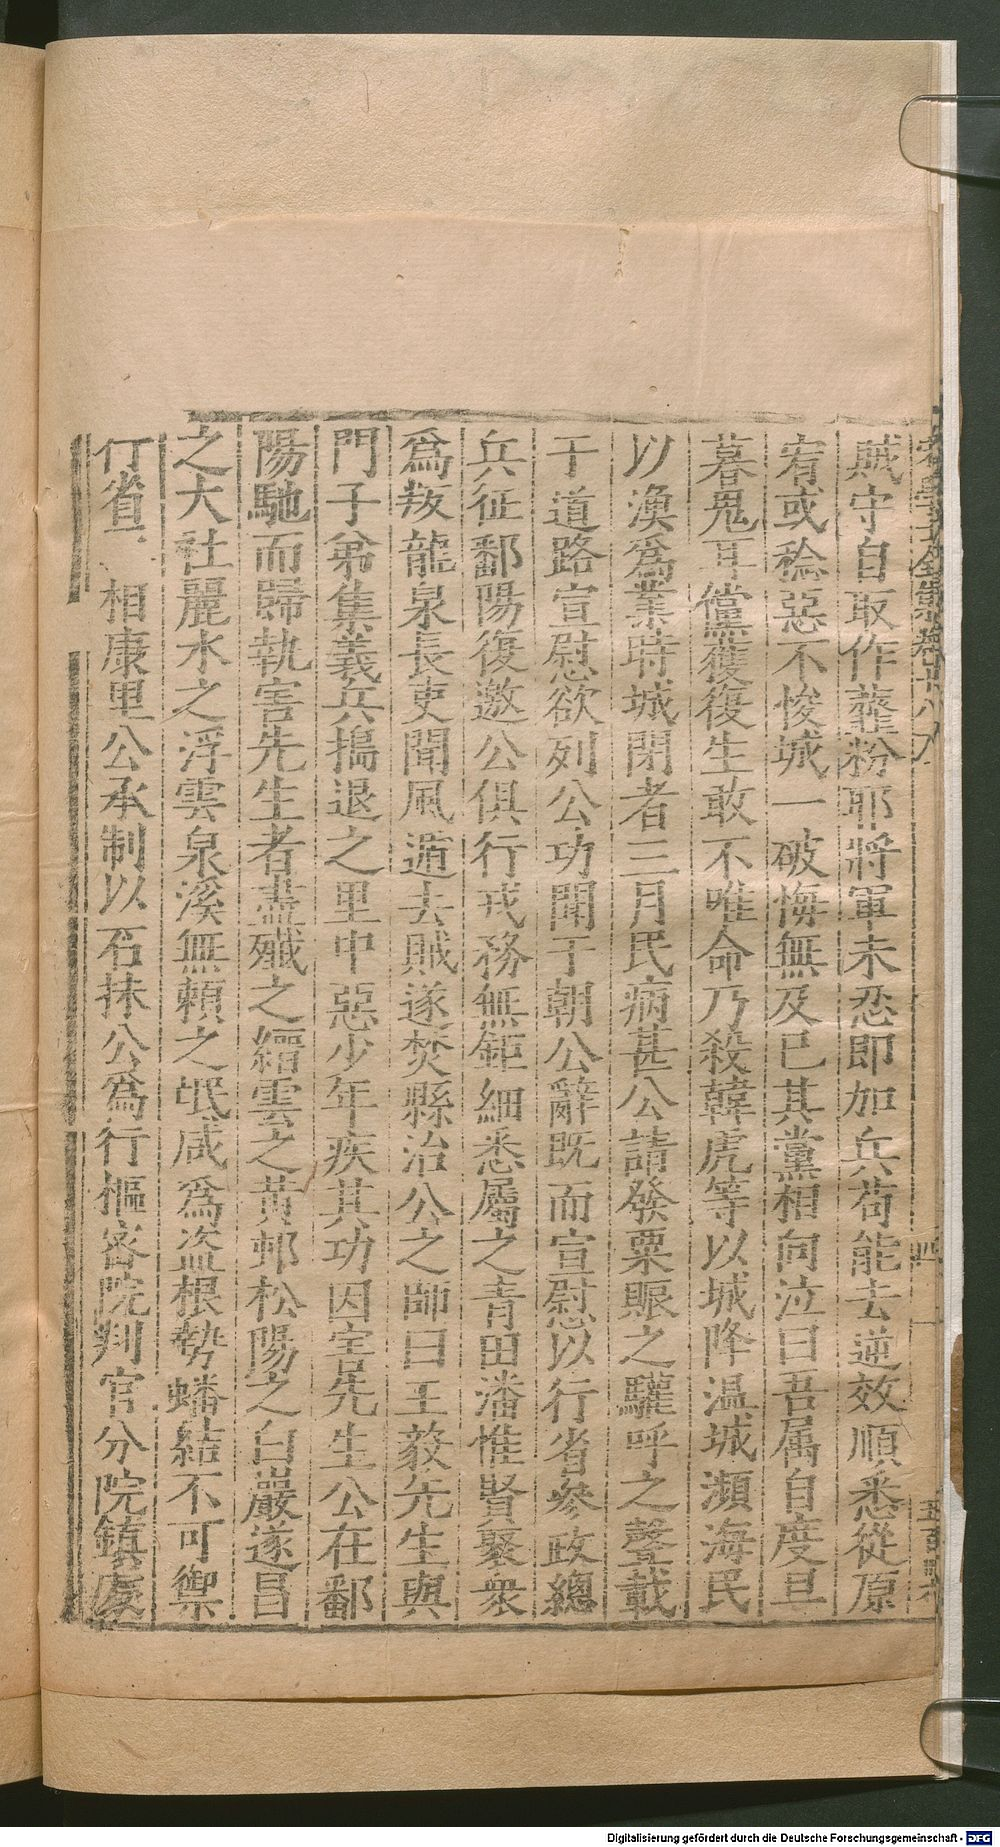 宋學士全集卷十八
四一
賊守自取作虀粉耶將軍未忍即加兵苟能去逆效順悉從原
宥或稔惡不悛城一破悔無及已其黨相向泣曰吾属自度旦
暮鬼耳儻獲復生敢不唯命乃殺韓虎等以城降温城瀕海民
以漁爲業時城閉者三月民病甚公請發粟賑之驩呼之聲載
于道路宣慰欲列公功聞于朝公辭既而宣慰以行省參政總
兵征鄱陽復邀公俱行戎務無鉅細悉屬之青田潘惟賢聚衆
爲叛龍泉長吏聞風遁去賊遂焚縣治公之師曰王毅先生與
門子弟集義兵搗退之里中惡少年疾其功因害先生公在鄱
陽馳而歸執害先生者盡殲之縉雲之黄村松陽之白巖遂昌
之大社麗水之浮雲泉溪無頼之氓咸爲盗根勢蟠結不可禦
行省 相康里公承制以石抹公爲行樞密院判官分院鎮處
Digitalisierung gefördert durch die Deutsche Forschungsgemeinschaft - DFG